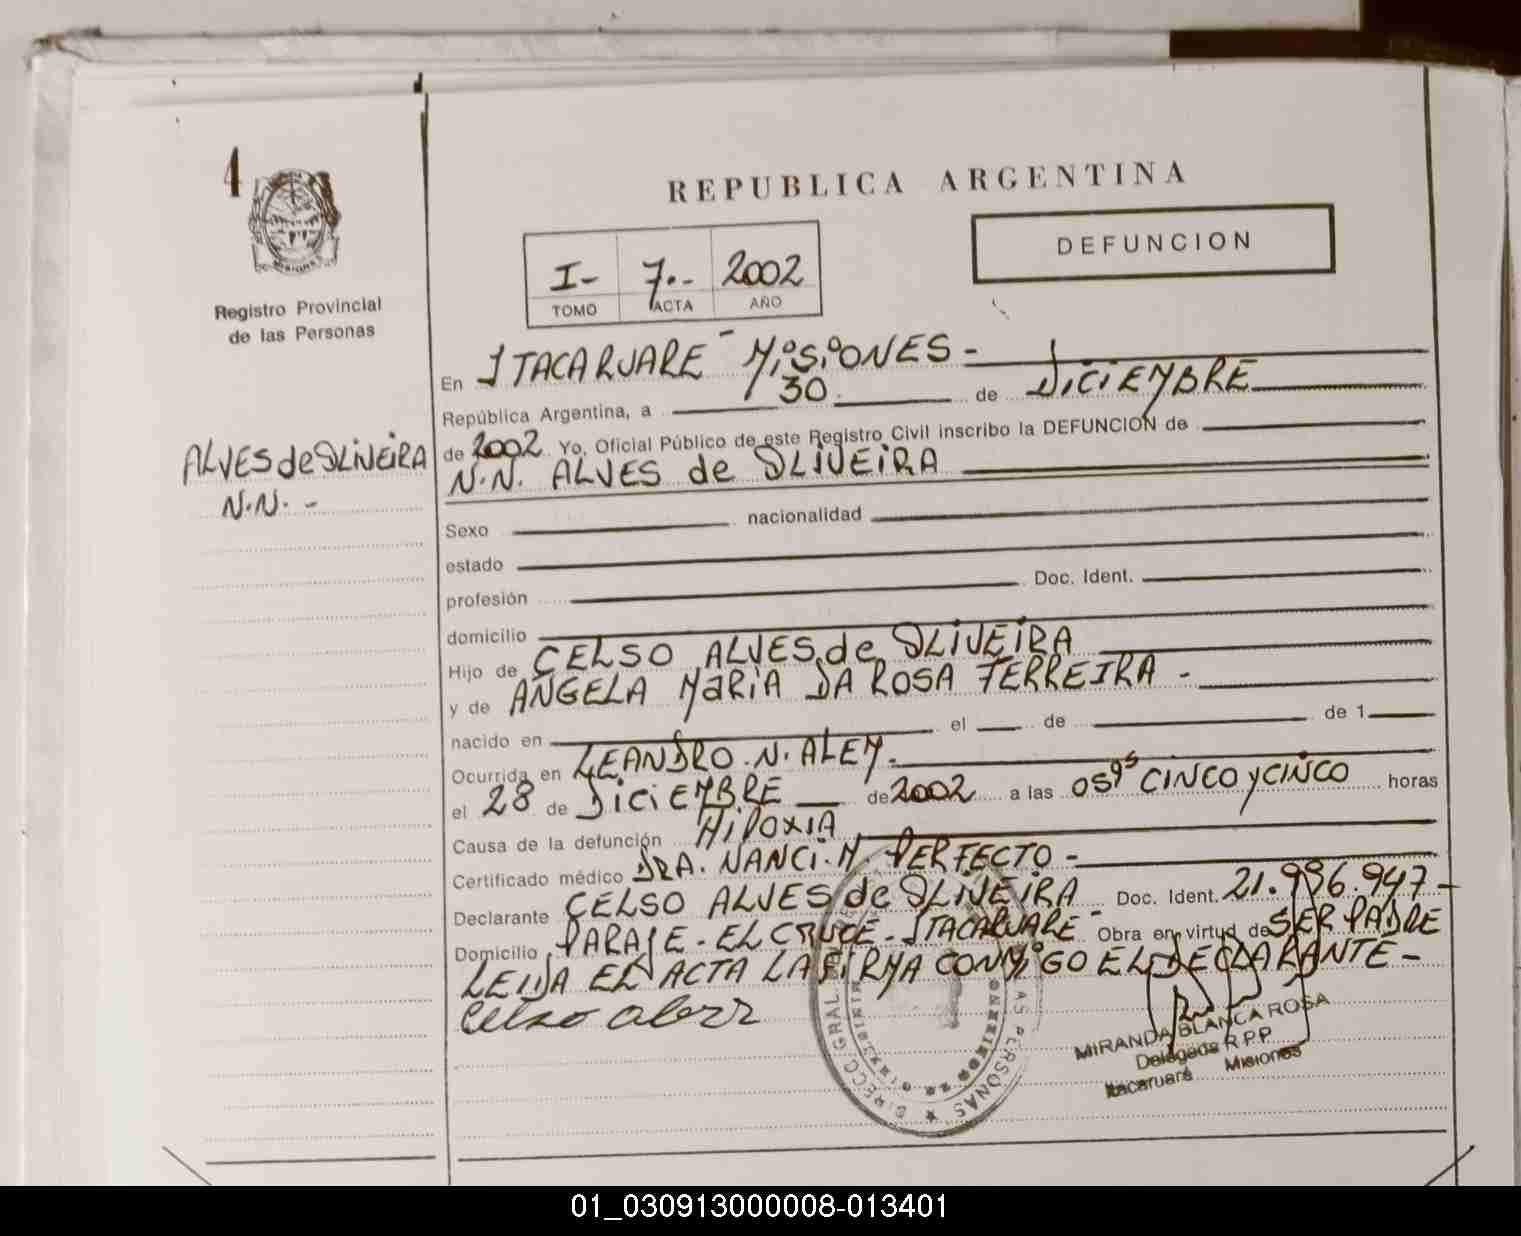 4
Registro Provincial
de las Personas
ALVES de OLiVEiRA
N.N. -
REPUBLICA ARGENTINA
DEFUNCION
I- 7.- 2002
TOMO ACTA AÑO
En ITACARUARE - MiSiONES -
República Argentina, a 30 de DiCiEMBRE
de 2002 Yo, Oficial Público de este Registro Civil inscribo la DEFUNCION de
N.N. ALVES de OLiVEiRA
Sexo nacionalidad
estado
profesión Doc. Ident.
domicilio
Hijo de CELSO ALVES de OLiVEiRA
y de ANGELA MaRiA DA ROSA FERREIRA -
nacido en el de de 1
Ocurrida en LEANDRO.N.ALEM-
el 28 de DiCiEMBRE de 2002 a las 05 CINCO y CINCO horas
Causa de la defunción HiPOXIA
Certificado médico DRA. NANCi.M. PERFECTO -
Declarante CELSO ALVES de OLIVEiRA Doc. Ident. 21.996.947-
Domicilio PARAJE - EL CRUCE - ITACARUARE - Obra en virtud de SER PADRE
LEIDA EL ACTA LA FiRMA CONMiGO EL DECLARANTE -
Celso
MIRANDA BLANCA ROSA
Delegada R.P.P
Itacaruaré Misiones
DIRECC. GRAL. PERSONAS
01_030913000008-013401